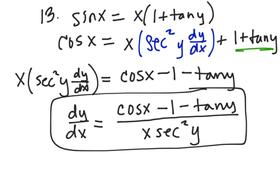 13. sinx = x(1+tany)
cosx = x(sec²y dy/dx) + 1+tany
x(sec²y dy/dx) = cosx − 1 − tany
dy/dx = (cosx − 1 − tany)/(x sec²y)